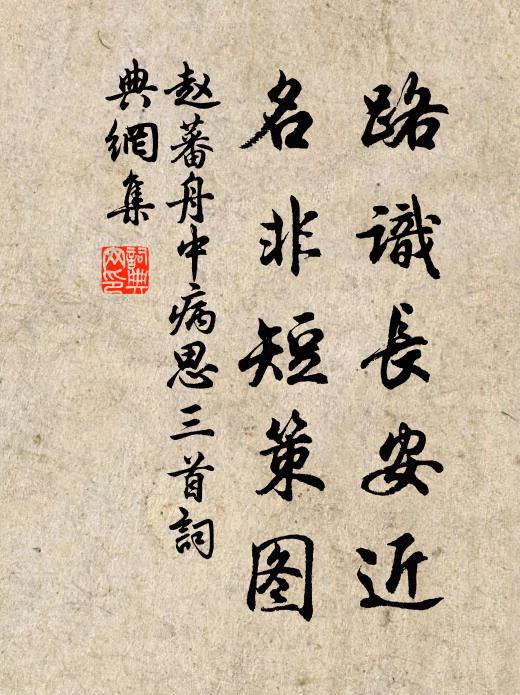 路識長安近
名非短策图
赵蕃舟中病思三首詞
典網集
詞典
网印